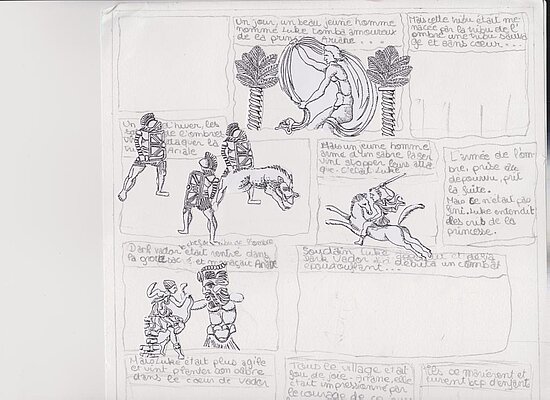 Un jour, un beau jeune homme
nommé Luke tomba amoureux
de la prin Ariane...
Mais cette tribu était me-
nacée par la tribu de l'
ombre une tribu sauva
ge et sans coeur...
Un d'hiver, les
de l'ombre
attaquer la
Ariale
Mais un jeune homme
armé d'un sabre laser
vint stopper leurs atta
que. c'était Luke
L'armée de l'om-
bre, prise au
dépourvu, prit
la fuite.
Mais ce n'était pas
fini. Luke entendit
des cris de la
princesse.
chef de la tribu de l'ombre
Dark vador était rentré dans
la grotte et menaçait Ariane
Soudain Luke
Dark Vador débuta un combat
époustouflant...
Mais Luke était plus agile
et vint planter son sabre
dans le coeur de Vador
Tous le village était
fou de joie Ariane, elle
était impressionné par
le courage de
ils se marièrent et
eurent bcp d'enfant